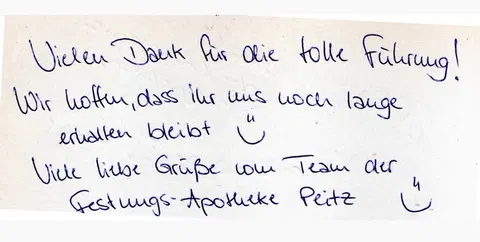 Vielen Dank für die tolle Führung!
Wir hoffen, dass ihr uns noch lange
erhalten bleibt ü
Viele liebe Grüße vom Team der
Festungs-Apotheke Peitz ü